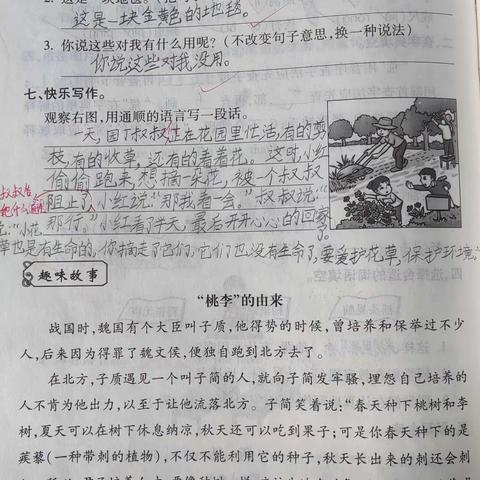 这是一块金黄色的地毯。
3. 你说这些对我有什么用呢？(不改变句子意思,换一种说法)
你说这些对我没用。
七、快乐写作。
观察右图,用通顺的语言写一段话。
一天,园丁叔叔正在花园里忙活,有的剪
枝,有的收草,还有的看着花。这时,小红
偷偷跑来,想摘一朵花,被一个叔叔
阻止了,小红说:“那我看一会。”叔叔说:“
那行。”小红看了半天,最后开开心心的回家了。
叔叔告
说:“小花
草也是有生命的,你摘走了它们,它们也没有生命了,要爱护花草,保护环境。”
趣味故事
“桃李”的由来
战国时,魏国有个大臣叫子质,他得势的时候,曾培养和保举过不少
人,后来因为得罪了魏文侯,便独自跑到北方去了。
在北方,子质遇见一个叫子简的人,就向子简发牢骚,埋怨自己培养的
人不肯为他出力,以至于让他流落北方。子简笑着说:“春天种下桃树和李
树,夏天可以在树下休息纳凉,秋天还可以吃到果子;可是你春天种下的是
蒺藜(一种带刺的植物),不仅不能利用它的种子,秋天长出来的刺还会刺